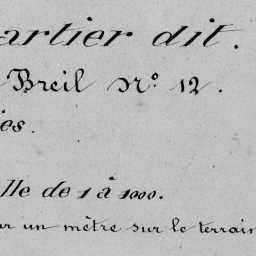 artier dit.
Breil N.° 12.
es.
lle de 1 à 1000.
ur un mètre sur le terrain